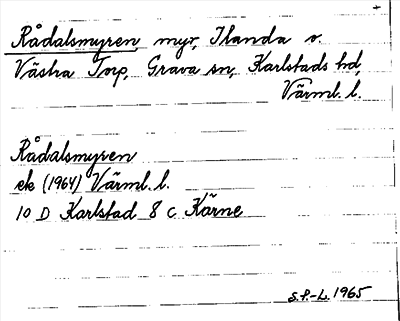 Rådalsmyren, myr, Ilanda o.
Västra Torp, Grava sn, Karlstads hd,
Värml. l.
Rådalsmyren
ek (1964) Värml. l.
10 D Karlstad 8 c Kärne
S.P.-L. 1965